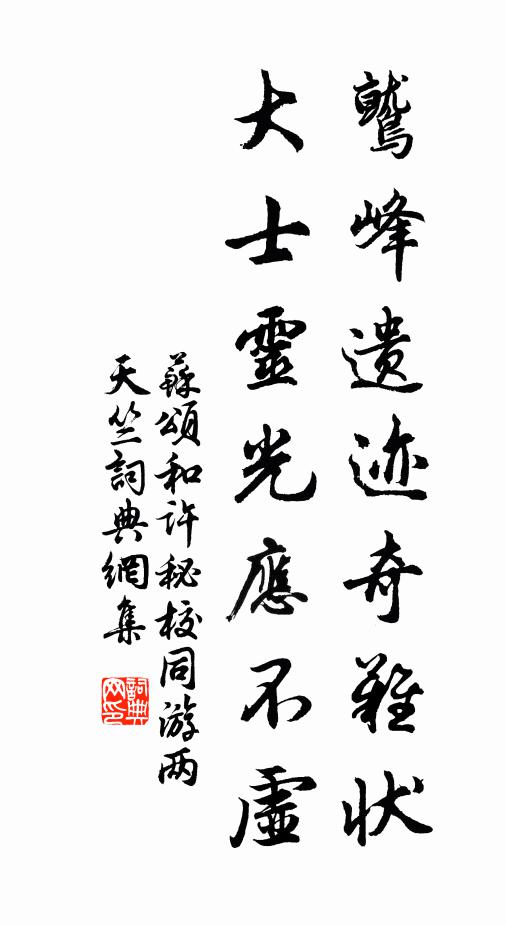 鷲峰遗迹奇難状
大士靈光應不虛
蘇頌和許秘校同游两
天竺詞典網集
詞典网印